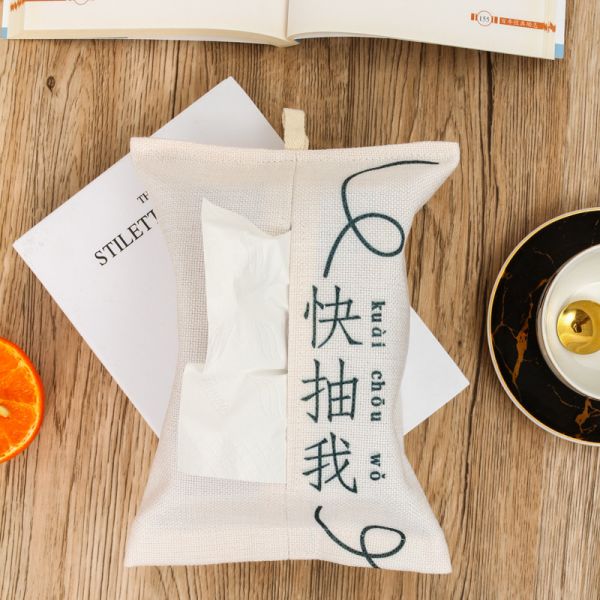 155
TH
STILETT
快抽我
kuài chōu wǒ